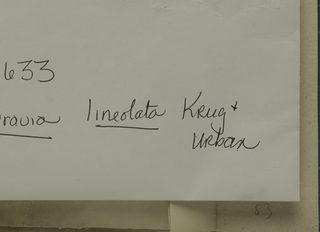 633
ravia lineolata Krug &
Urban
53